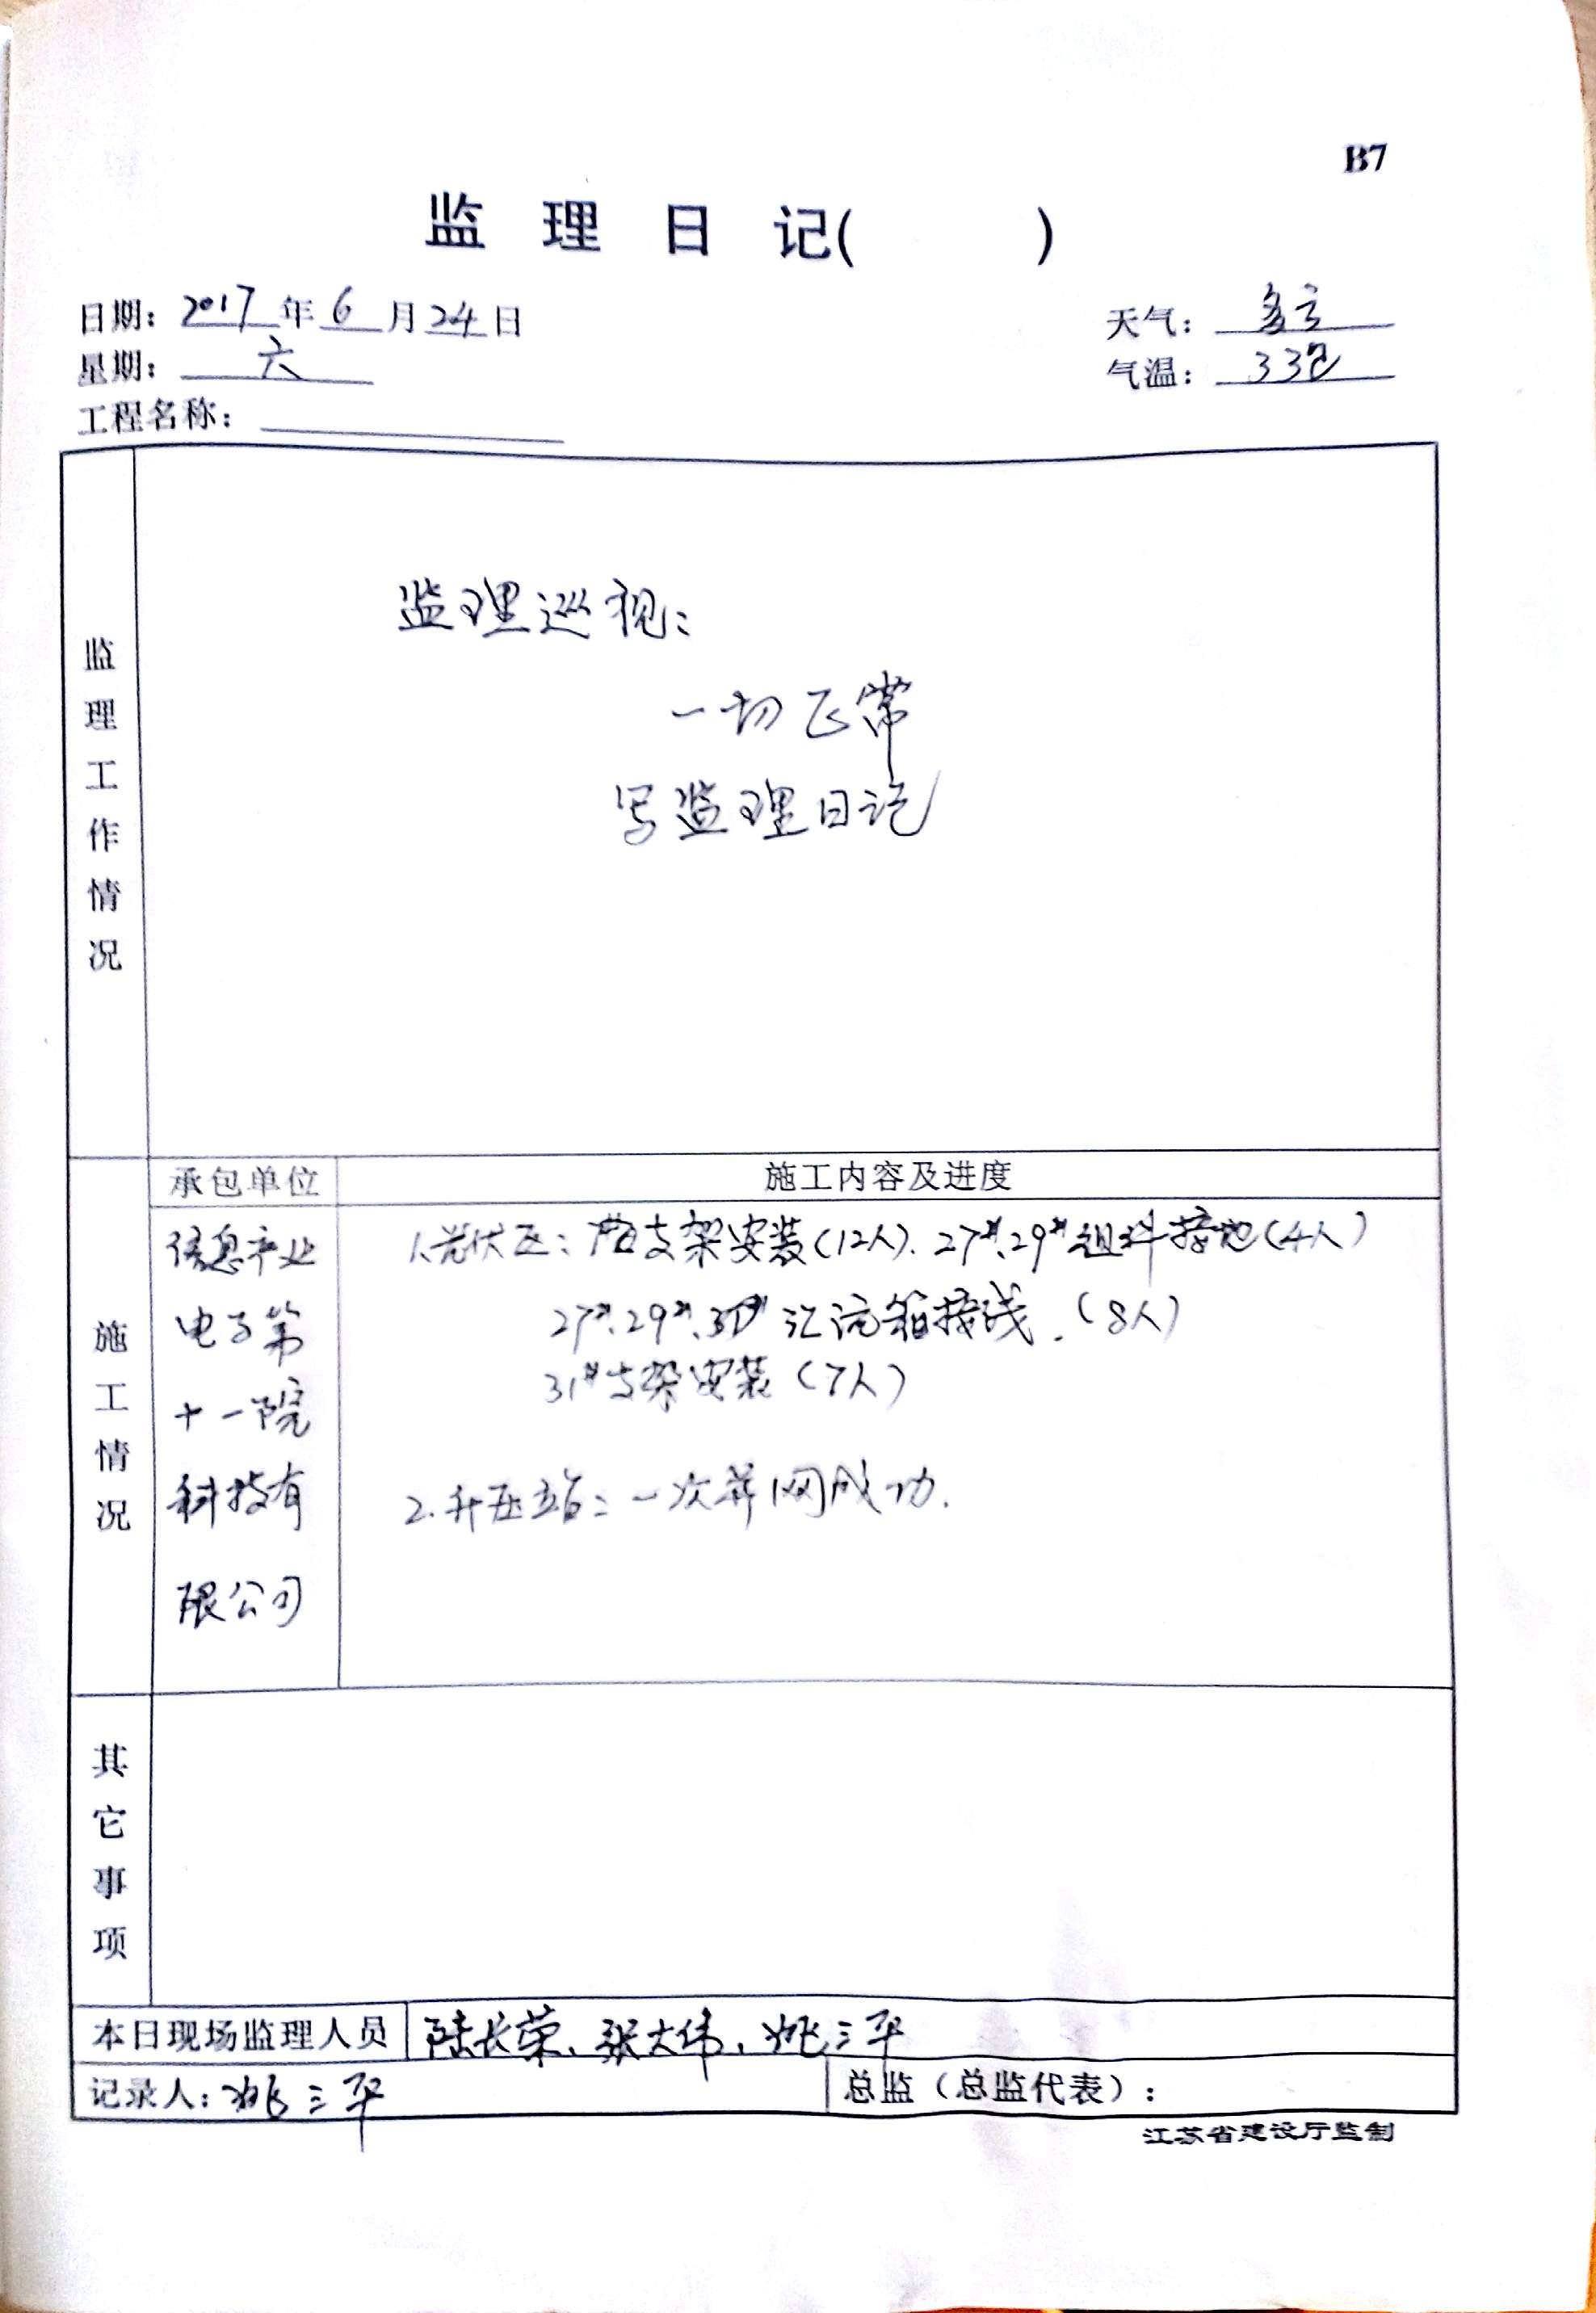 B7
监 理 日 记(          )
日期：2017年6月24日
天气：多云
星期：六
气温：33℃
工程名称：
监理工作情况
监理巡视：
一切正常
写监理日记
施工情况
承包单位
施工内容及进度
信息产业
电子第
十一院
科技有
限公司
1.光伏区：支架安装(12人). 27#.29#组料接地(4人)
27#.29#.30#汇流箱接线.(8人)
31#支架安装(7人)
2.升压站：一次并网成功.
其它事项
本日现场监理人员 陆长荣、张大伟、姚三平
记录人：姚三平
总监（总监代表）：
江苏省建设厅监制